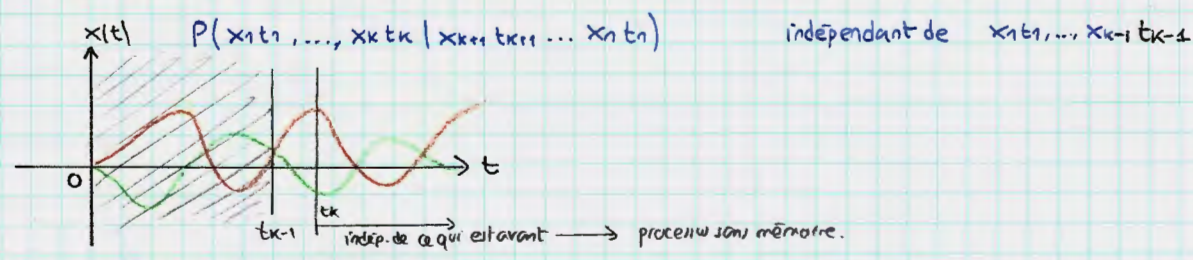 P(x1t1, ..., xktk | xk+1 tk+1 ... xntn) indépendant de x1t1, ..., xk-1 tk-1
x(t)
t
0
tk-1
tk
indép. de ce qui est avant → processus sans mémoire.